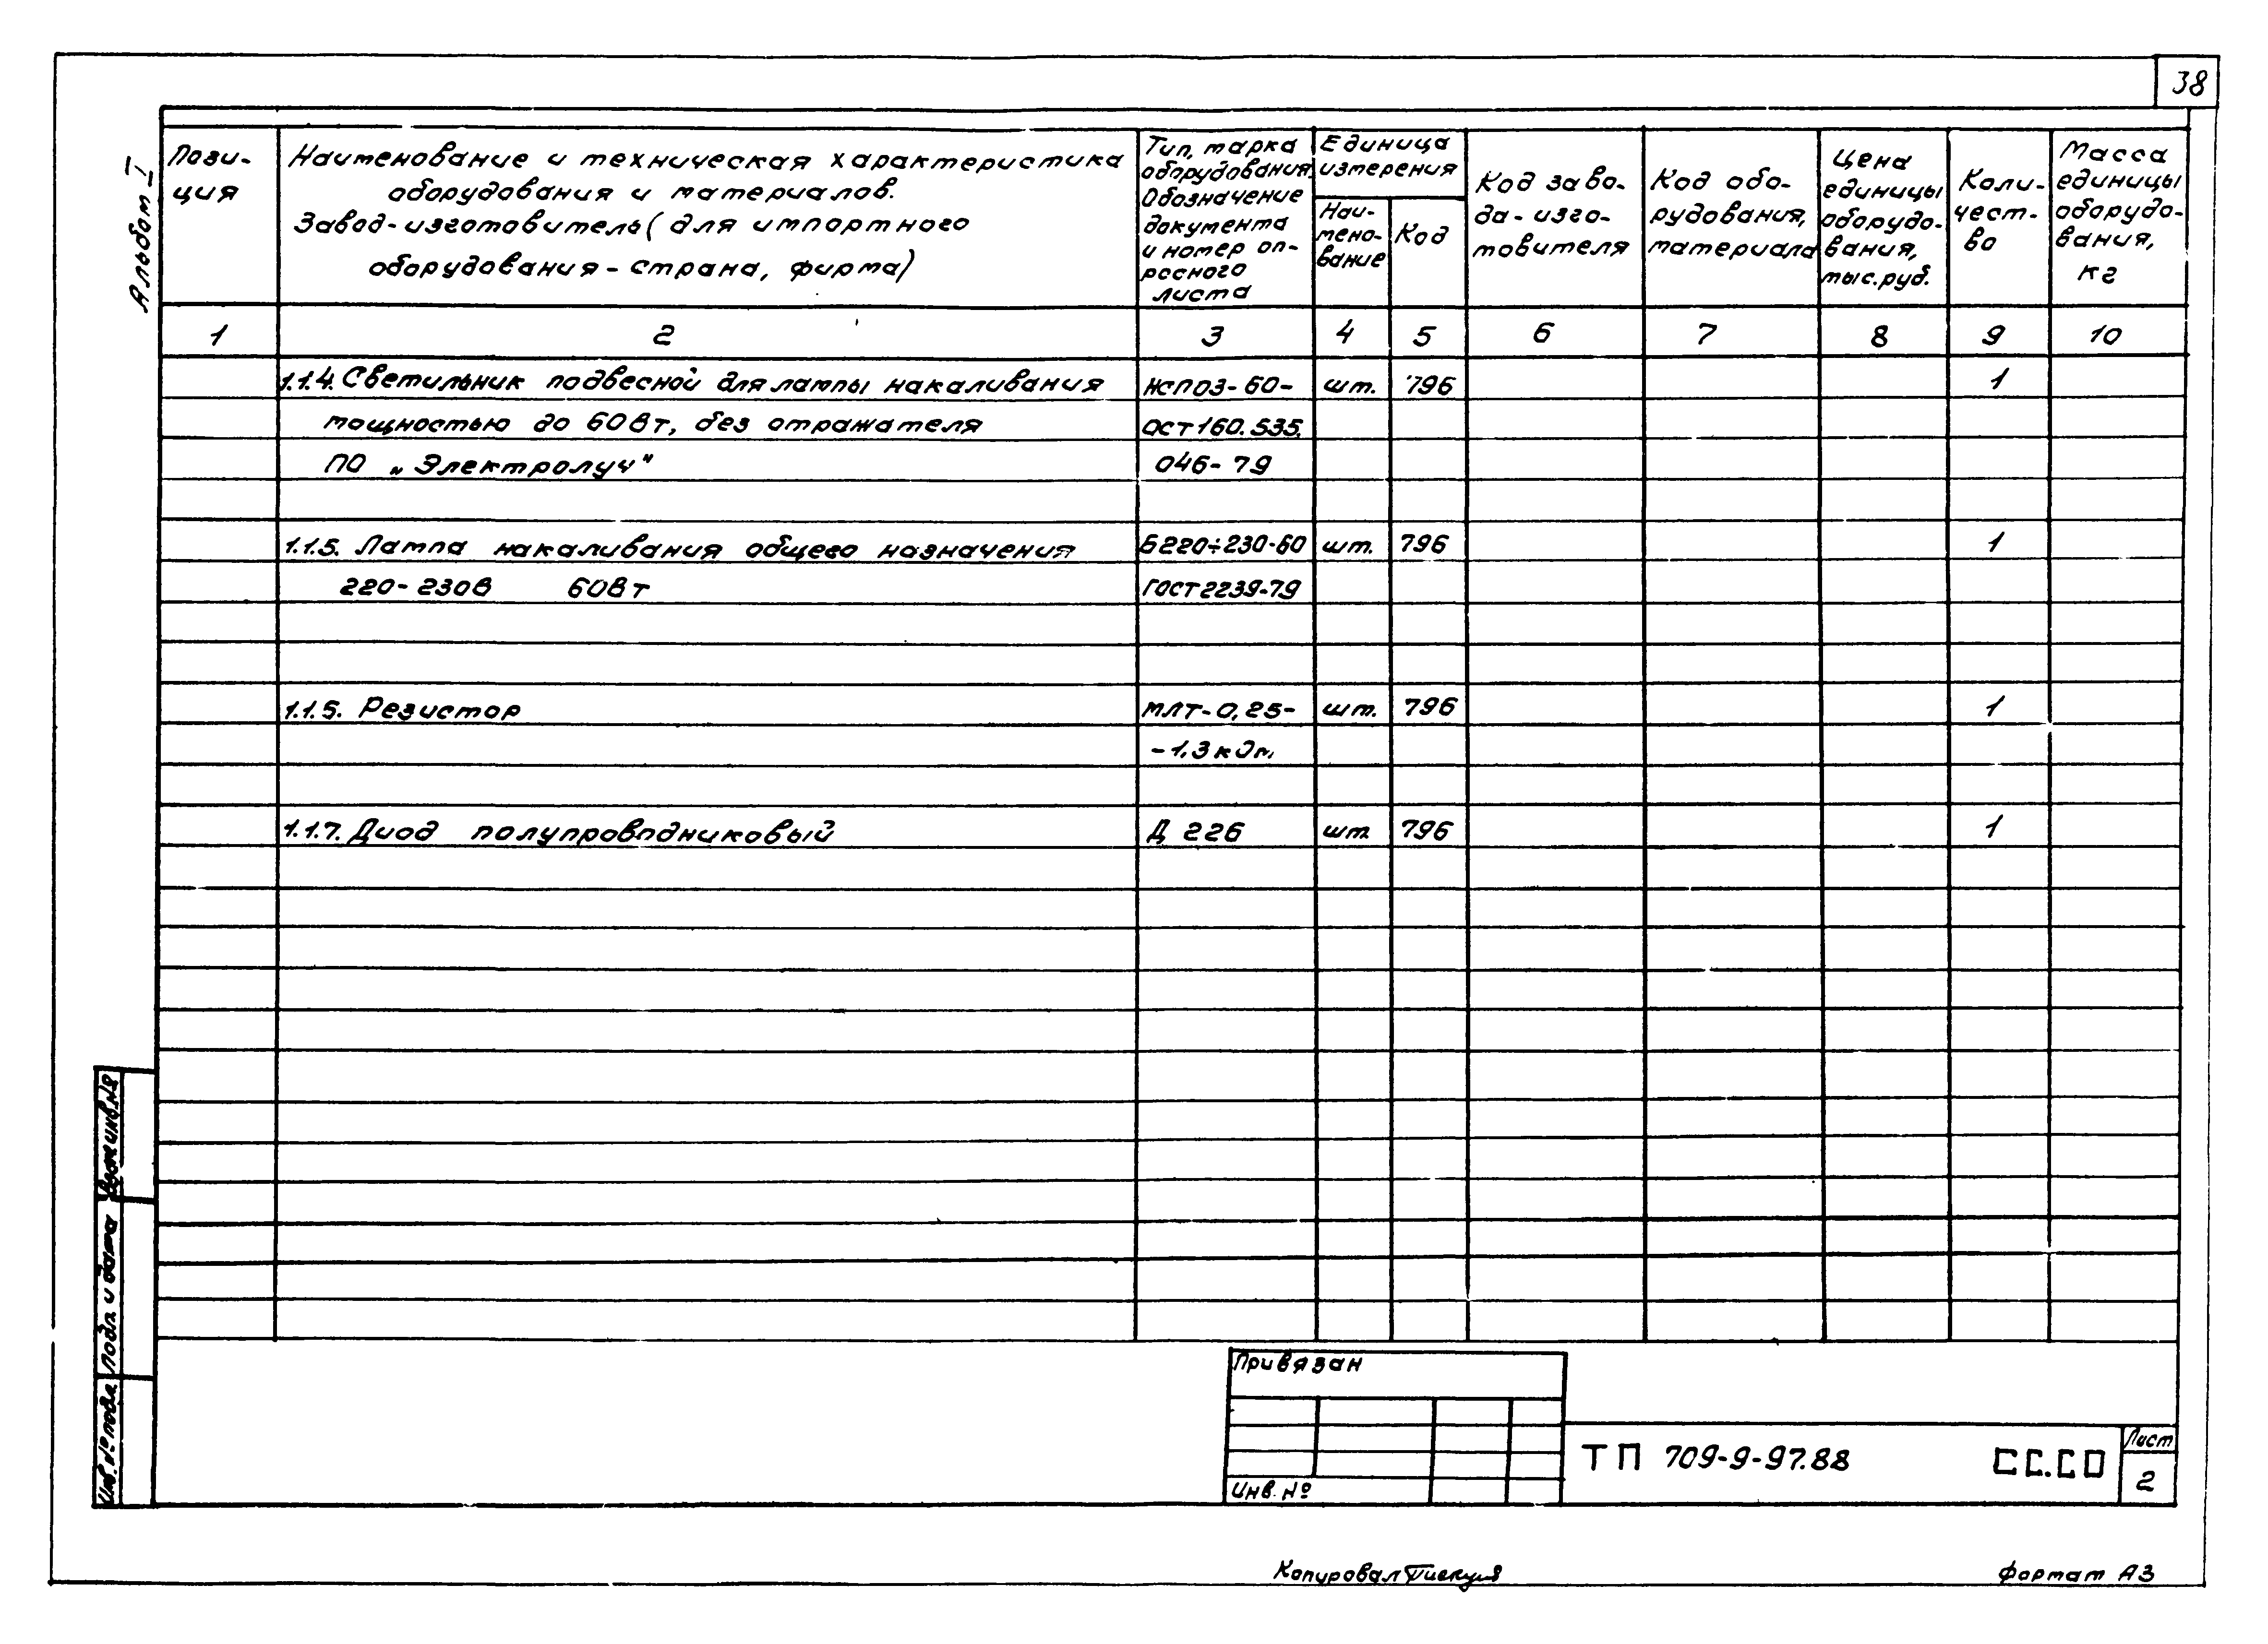 38
Альбом I
Пози-
ция
Наименование и техническая характеристика
оборудования и материалов.
Завод-изготовитель (для импортного
оборудования - страна, фирма)
Тип, марка
оборудования.
Обозначение
документа
и номер оп-
росного
листа
Единица
измерения
Наи-
мено-
вание
Код
Код заво-
да-изго-
товителя
Код обо-
рудования,
материала
Цена
единицы
оборудо-
вания,
тыс.руб.
Коли-
чест-
во
Масса
единицы
оборудо-
вания,
кг
1 2 3 4 5 6 7 8 9 10
1.1.4. Светильник подвесной для лампы накаливания НСП03-60- шт. 796 1
мощностью до 60Вт, без отражателя ОСТ160.535.
ПО „Электролуч" 046-79
1.1.5. Лампа накаливания общего назначения Б220÷230-60 шт. 796 1
220-230В 60Вт ГОСТ2239-79
1.1.6. Резистор МЛТ-0,25- шт. 796 1
-1.3кОм
1.1.7. Диод полупроводниковый Д 226 шт 796 1
Взам инв.№
Подп. и дата
Инв.№ подл
Привязан
Инв. №
ТП 709-9-97.88 СС.СО
Лист
2
Копировал
Формат А3